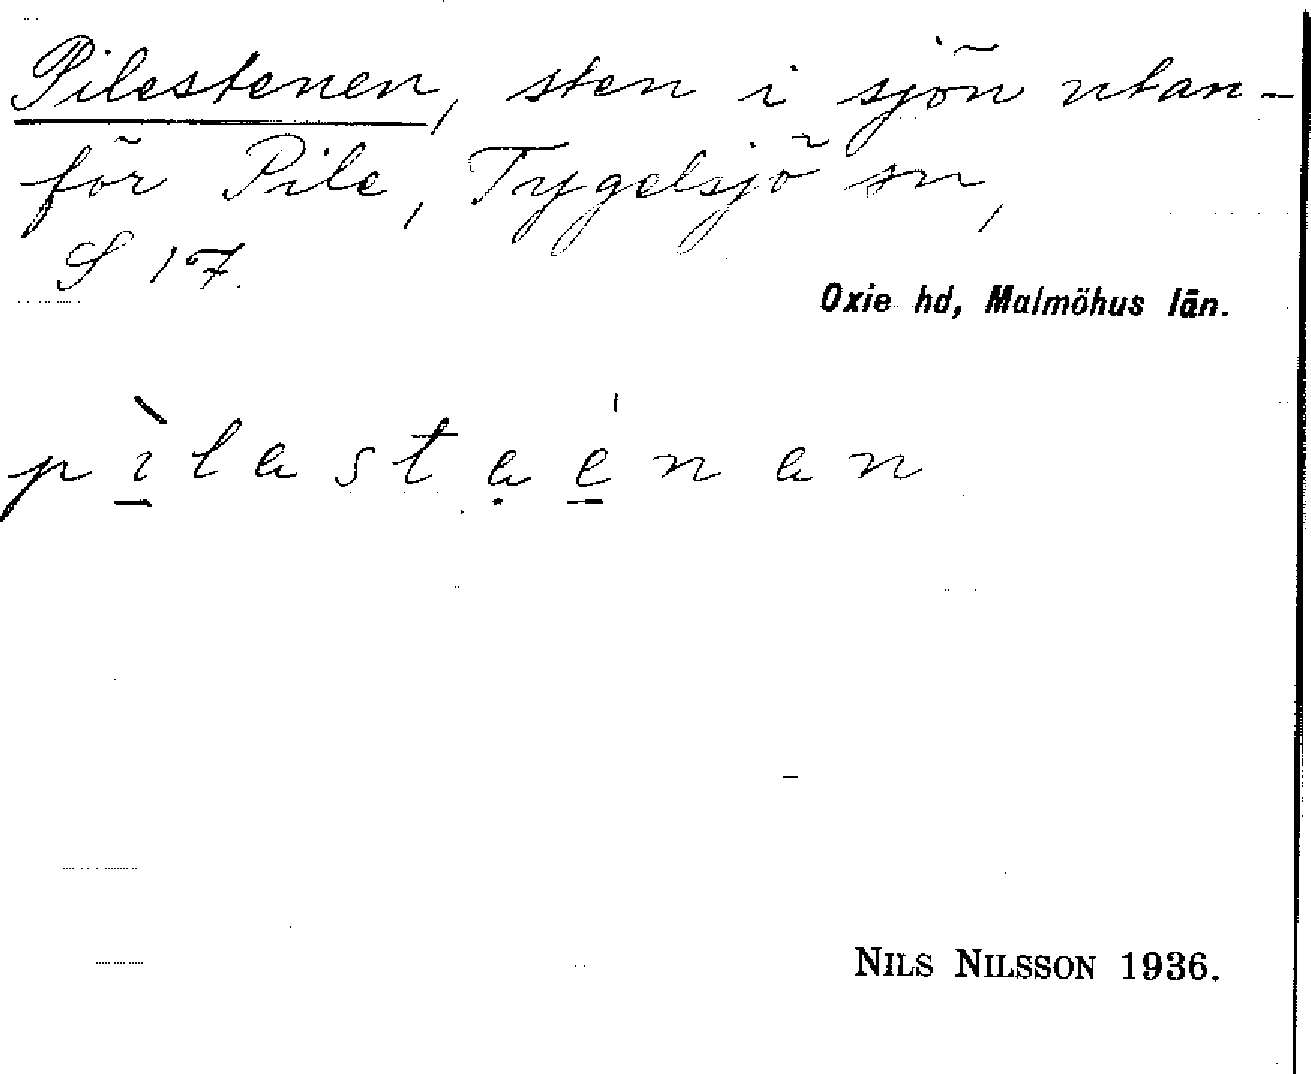 Pilestenen, sten i sjön utan-
för Pile, Tygelsjö sn,
S 17.
Oxie hd, Malmöhus län.
pìlastaénan
NILS NILSSON 1936.